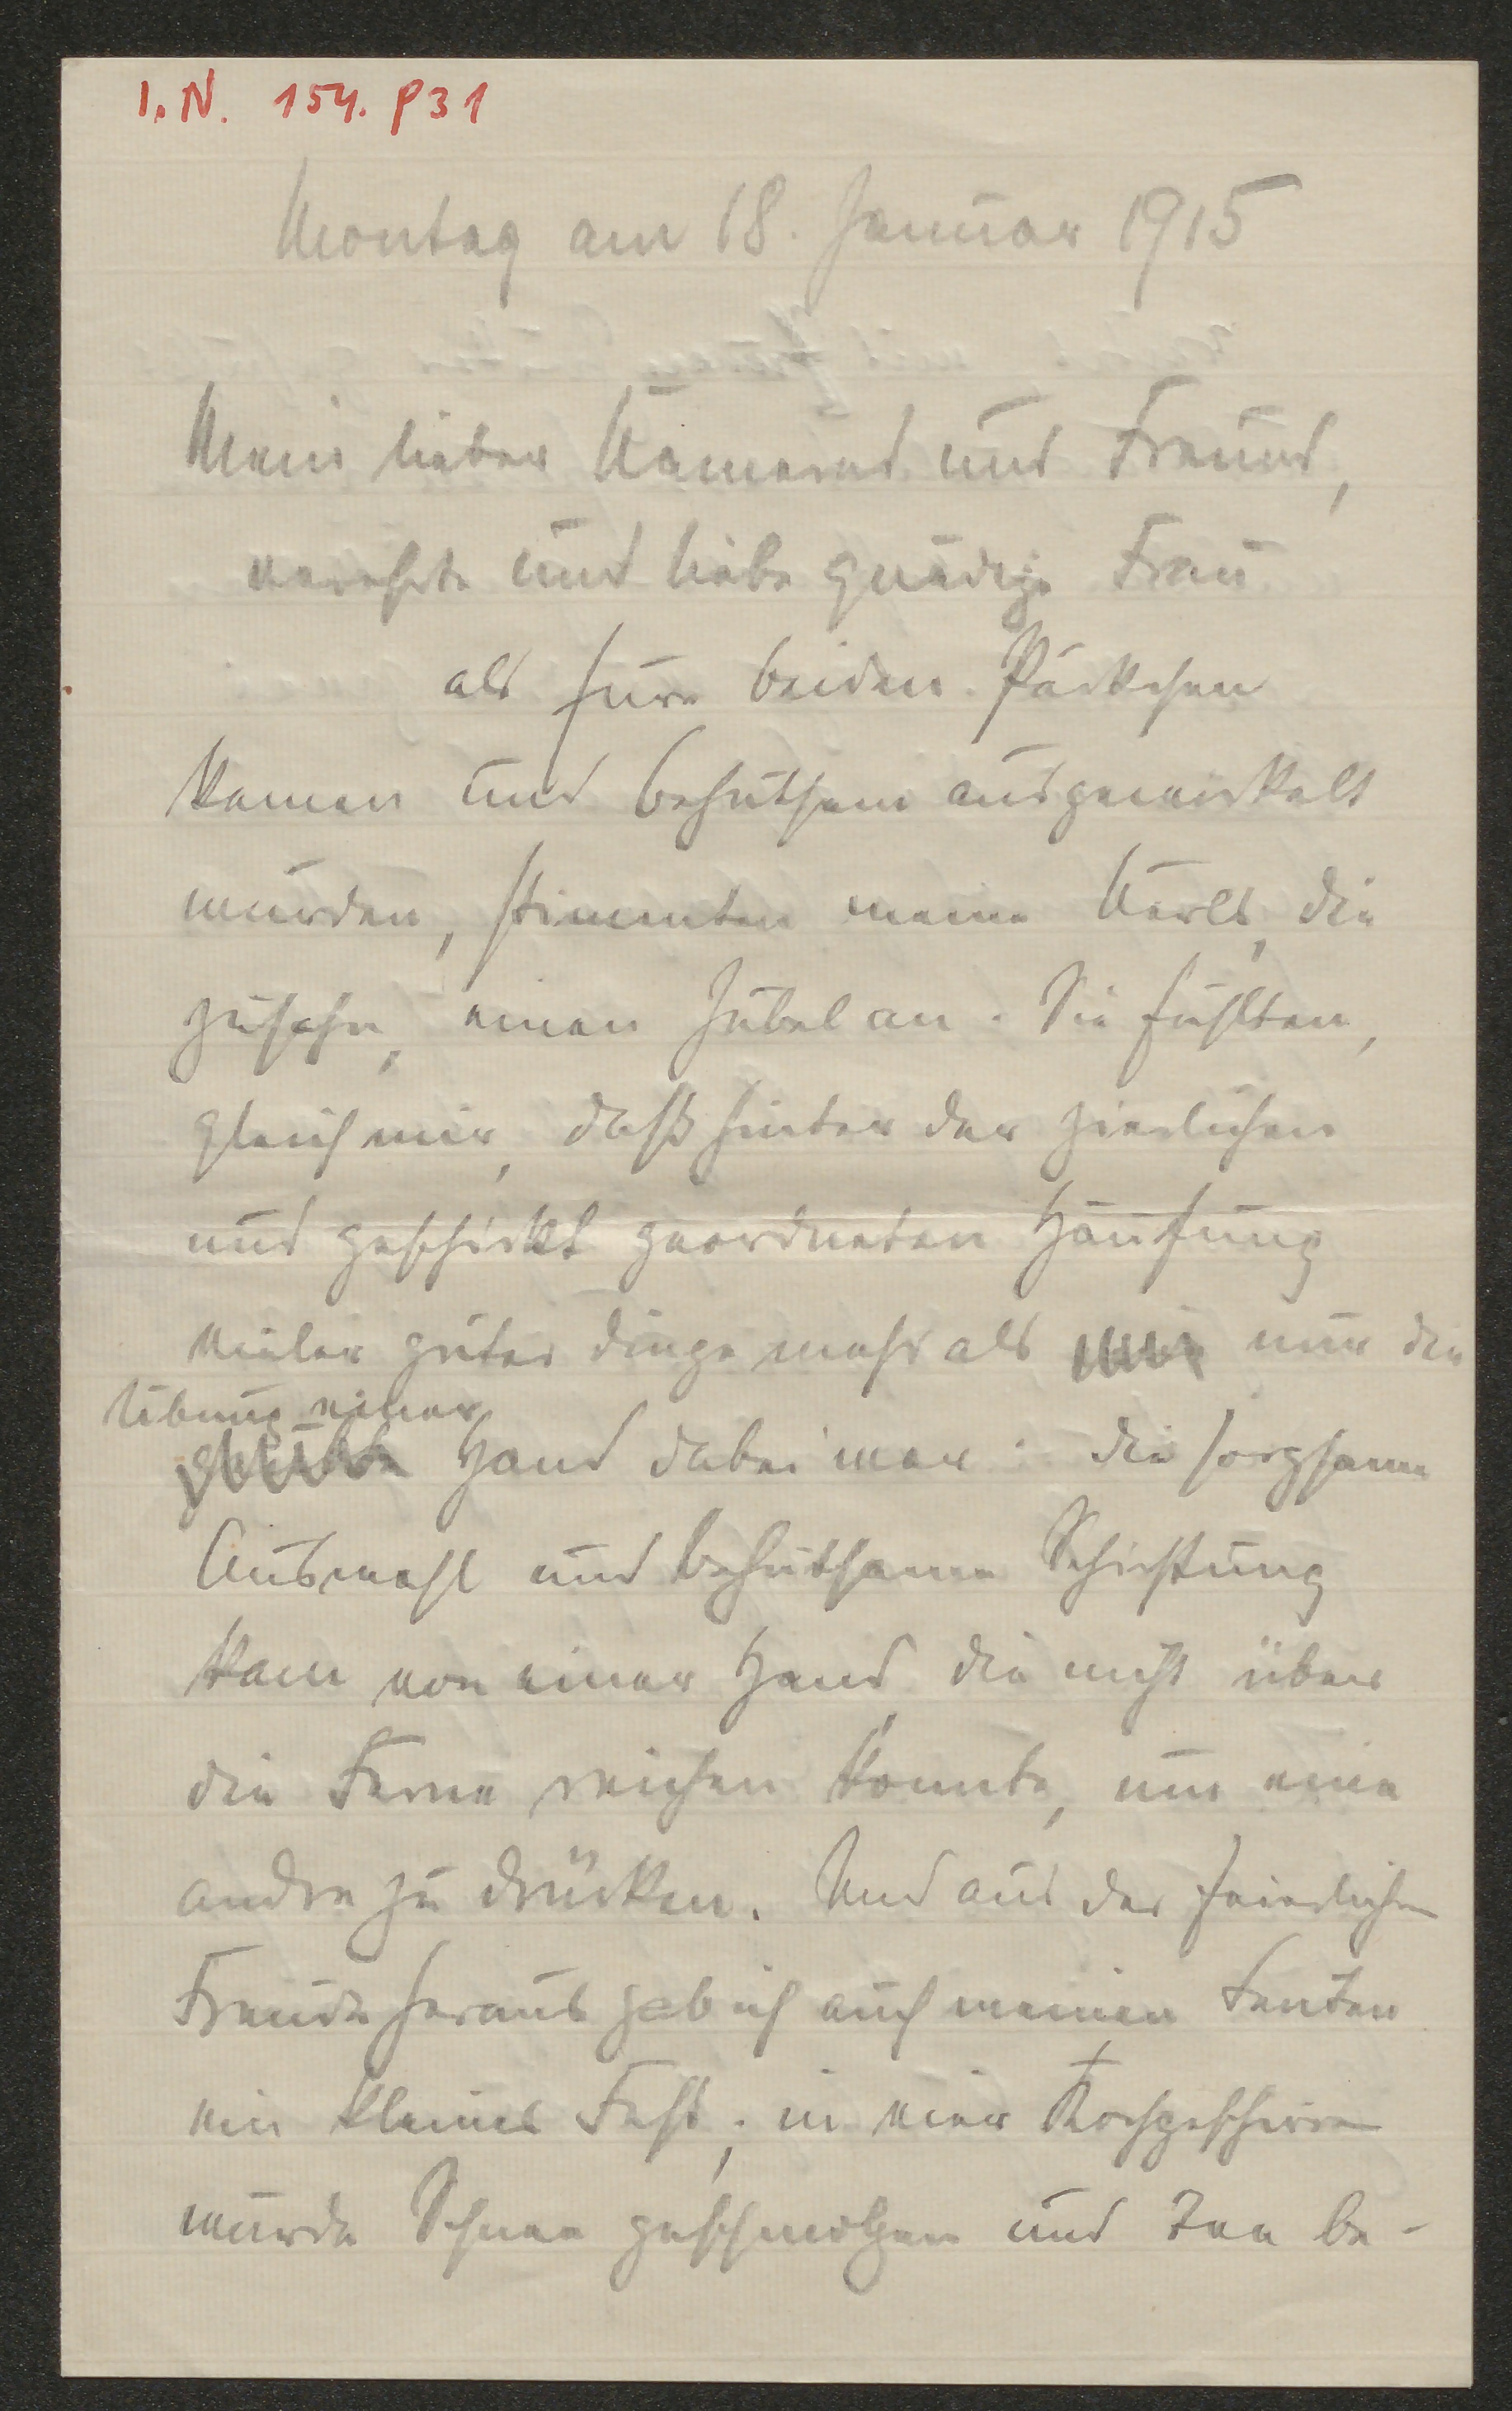 I. N. 154. P 31
Montag am 18. Januar 1915
Mein lieber Kamerad und Freund,
verehrte und liebe gnädige Frau
als Eure beiden Päckchen
kamen und behutsam ausgewickelt
wurden, stimmten meine Kerls, die
zusehn, einen Jubel an. Sie fühlten,
gleich mir, daß hinter der zierlichen
und geschickt geordneten Häufung
vieler guter Dinge mehr als nur die
Übung einer
Hand dabei war: die sorgsame
Auswahl und behutsame Schichtung
kam von einer Hand, die nicht über
die Ferne reichen konnte, um eine
andre zu drücken. Und aus der feierlichen
Freude heraus gab ich auch meinen Leuten
ein kleines Fest; in vier Kochgeschirren
wurde Schnee geschmolzen und Tee be-